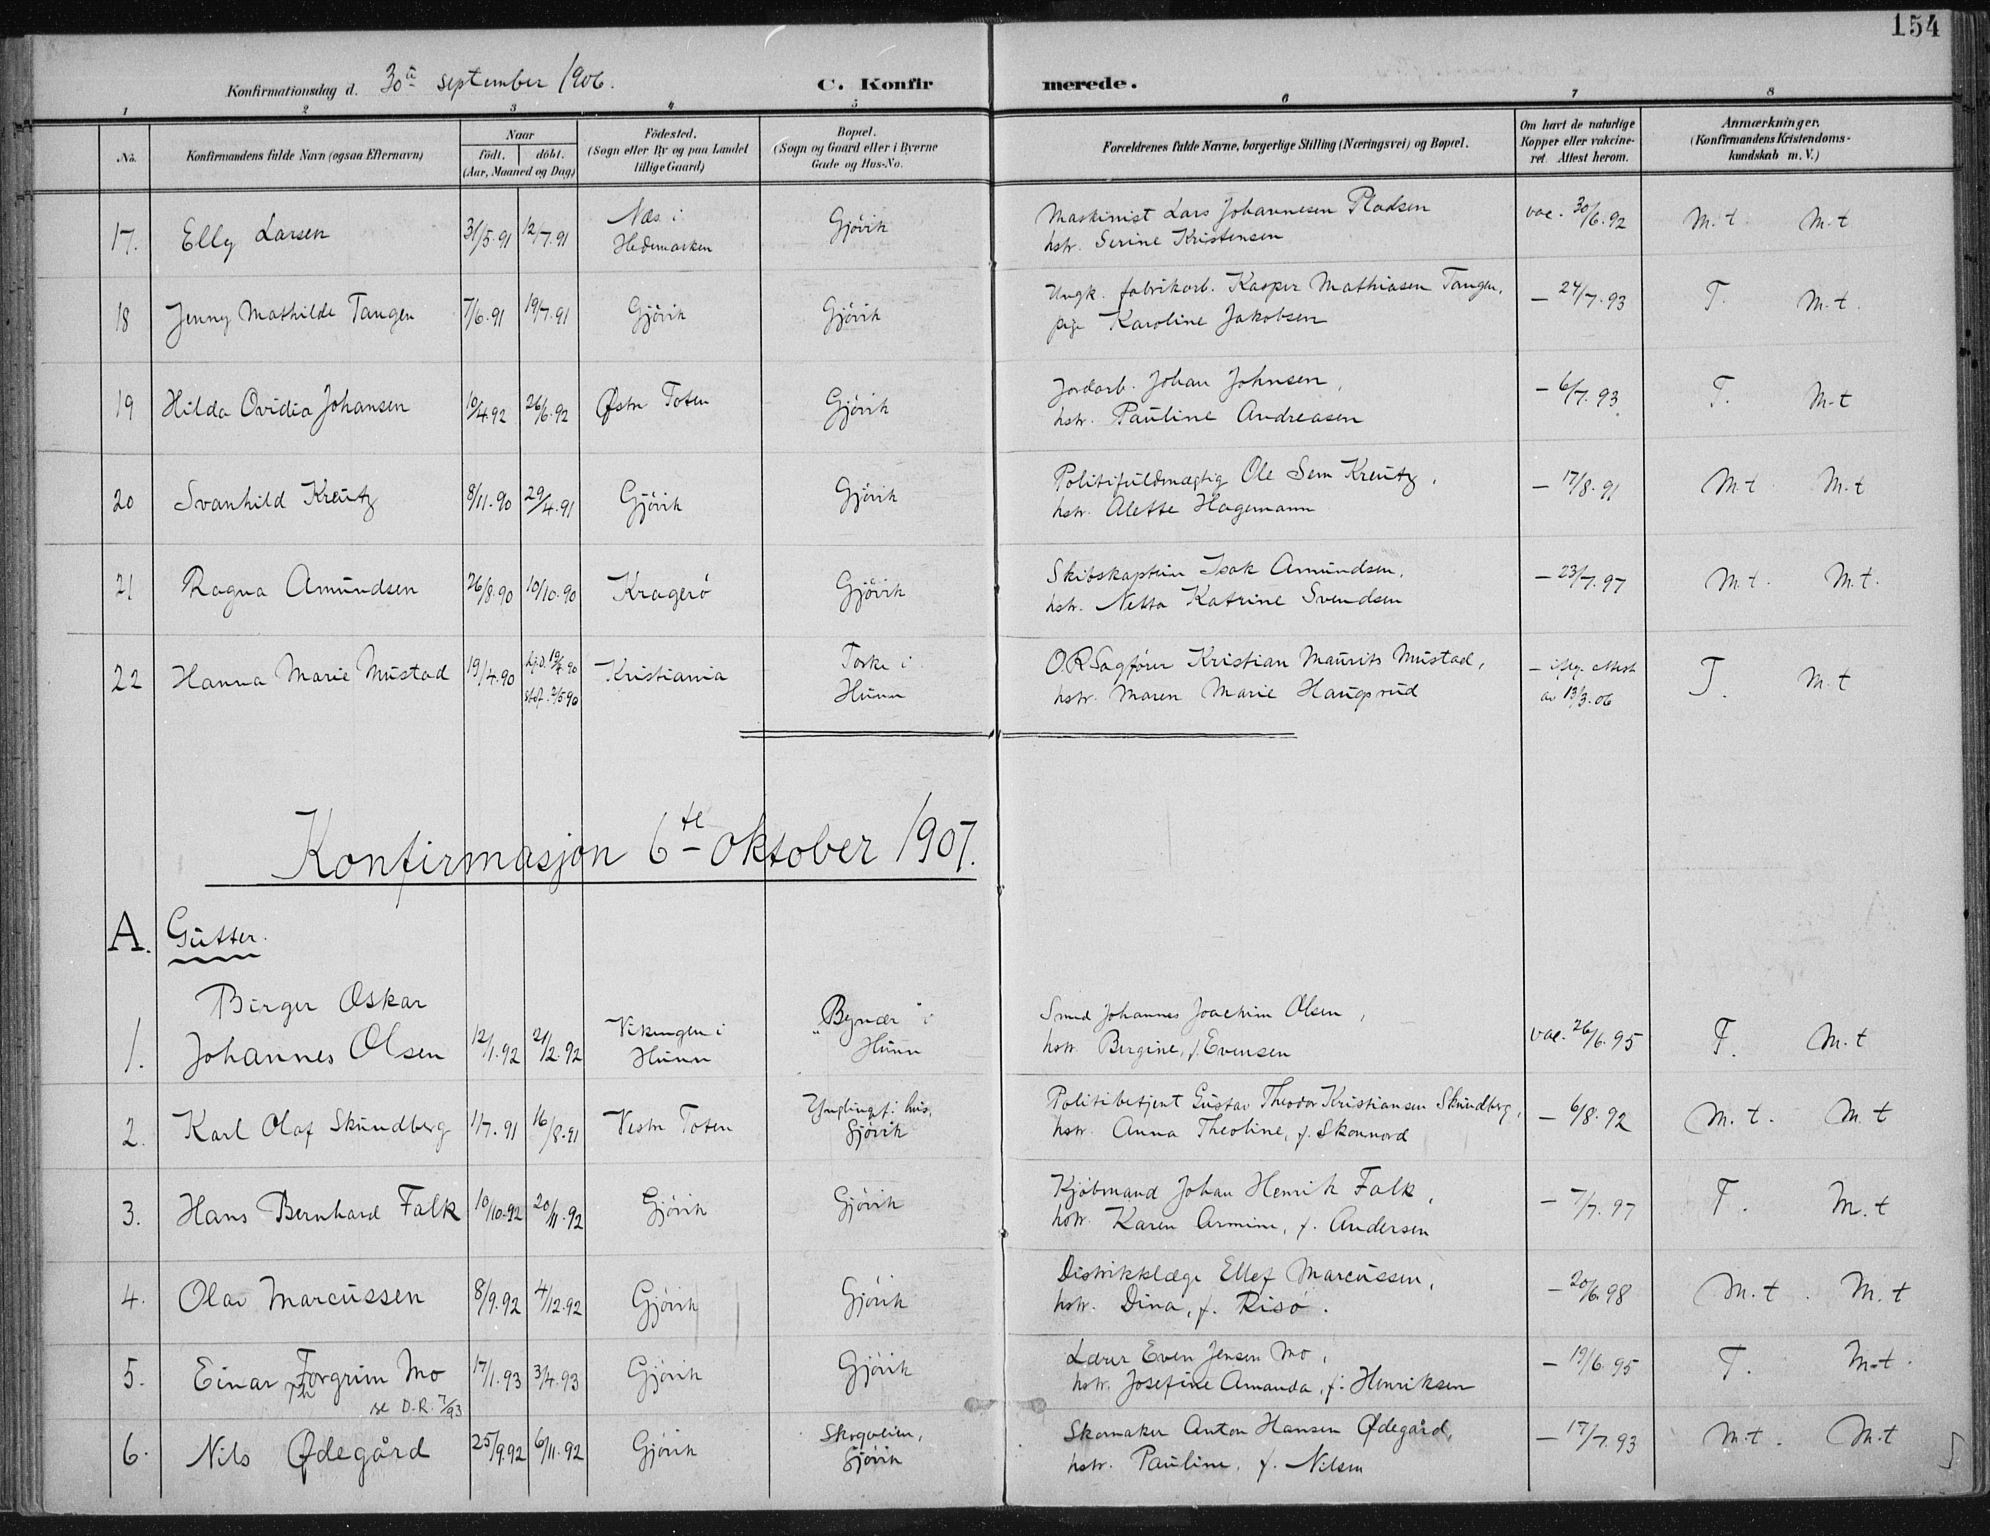 154
Konfirmationsdag d. 30te september 1906. C. Konfirmerede.
1 2 3 4 5 6 7 8
No. Konfirmandens fulde Navn (ogsaa Efternavn) Naar födt. döbt. (Aar, Maaned og Dag) Födested. (Sogn eller By og paa Landet tillige Gaard) Bopæl. (Sogn og Gaard eller i Byerne Gade og Hus-No. Forældrenes fulde Navne, borgerlige Stilling (Næringsvei) og Bopæl. Om havt de naturlige Kopper eller vakcineret. Attest herom. Anmærkninger. (Konfirmandens Kristendomskundskab m. V.)
17. Elly Larsen 31/5.91 12/7.91 Næs i Hedemarken Gjövik Maskinist Lars Johannesen Pladsen
hstr. Serine Kristensen vac. 30/6.92 M.t. M.t
18 Jenny Mathilde Tangen 7/6.91 19/7.91 Gjövik Gjövik Ungk. fabrikarb. Kasper Mathiasen Tangen,
pige Karoline Jakobsen — 24/7.93 T. M.t.
19 Hilda Ovidia Johansen 10/4.92 26/6.92 Østre Toten Gjövik Jordarb. Johan Johnsen,
hstr. Pauline Andreasen — 6/7.93. T. M.t
20 Svanhild Kreutz 8/11.90 29/4.91 Gjövik Gjövik Politifuldmægtig Ole Sem Kreutz,
hstr. Alette Hagemann — 17/8.91 M.t M.t
21 Ragna Amundsen 26/8.90 10/10.90 Kragerö Gjövik Skibskaptein Isak Amundsen,
hstr. Netta Katrine Svendsen — 23/7.97 M.t. M.t.
22 Hanna Marie Mustad 19/4.90 hj.d. 19/4.90 stf. 2/5.90 Kristiania Torke i Hunn O.R.Sagfører Kristian Maurits Mustad,
hstr. Maren Marie Haugsrud — ifølg. attest av 13/3.06 T. M.t
Konfirmasjon 6te oktober 1907.
A. Gutter.
1. Birger Oskar
Johannes Olsen 12/1.92 21/2.92 Vikingen i Hunn "Bynær" i Hunn Smed Johannes Joachim Olsen,
hstr. Bergine, f. Evensen vac. 26/6.95 T. M.t
2. Karl Olaf Skundberg 1/7.91 16/8.91 Vestre Toten Ynglingef. hus, Gjövik Politibetjent Gustav Theodor Kristiansen Skundberg,
hstr. Anna Theoline, f. Skonnord — 6/8.92 M.t. M.t
3. Hans Bernhard Falk 10/10.92 20/11.92 Gjövik Gjövik Kjöbmand Johan Henrik Falk,
hstr. Karen Armine, f. Andersen — 7/7.97 T. M.t
4. Olav Marcussen 8/9.92 4/12.92 Gjövik Gjövik Distriktslæge Ellef Marcussen,
hstr. Dina, f. Risö. — 20/6.98 M.t. M.t
5. Einar Torgrim Mo 17/1.93 3/4.93 Gjövik Gjövik Lærer Even Jensen Mo,
se D.R. 7/93 hstr. Josefine Amanda, f. Henriksen — 19/6.95 T. M.t.
6. Nils Ødegård 25/9.92 6/11.92 Gjövik Skogveien, Gjövik Skomaker Anton Hansen Ødegård,
hstr. Pauline, f. Nilsen — 17/7.93 M.t. M.t